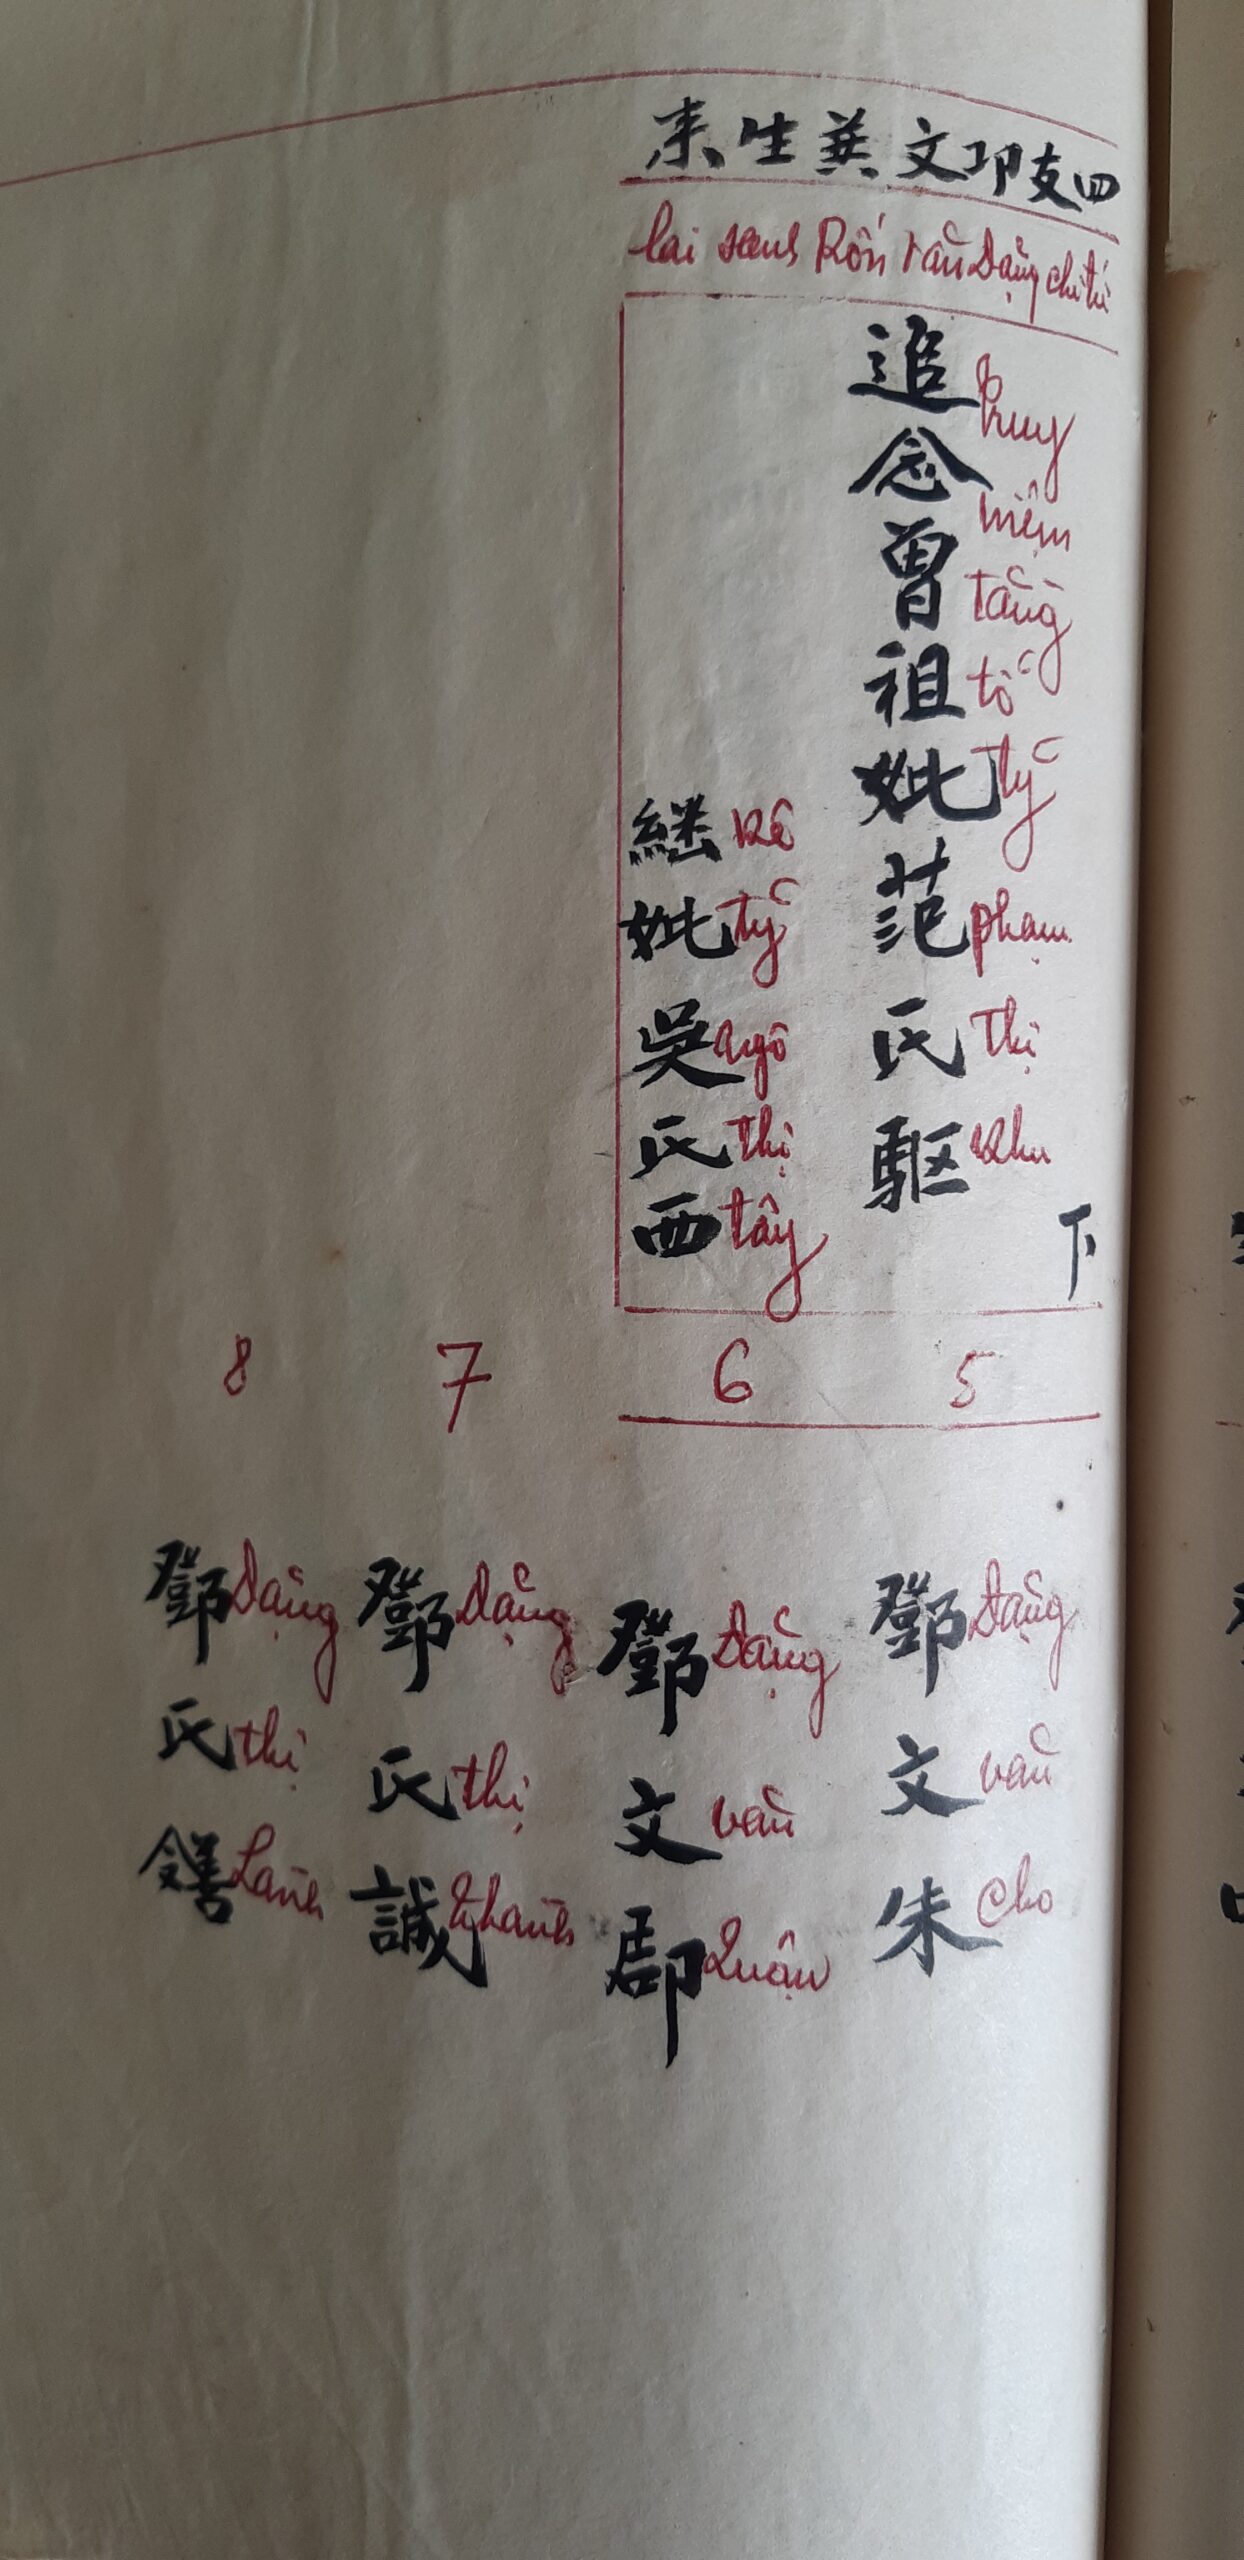 四支卭文葬生耒
lai sanh Rốn văn Đặng chi tứ
追念曾祖妣范氏駆
truy niệm tằng tổ tỷ phạm Thị Khu
継妣吳氏西
Kế tỷ ngô thị tây
下
5
6
7
8
鄧文朱
Đặng văn Cho
鄧文郡
Đặng văn Quận
鄧氏誠
Đặng thị Thành
鄧氏
Đặng thị Lành